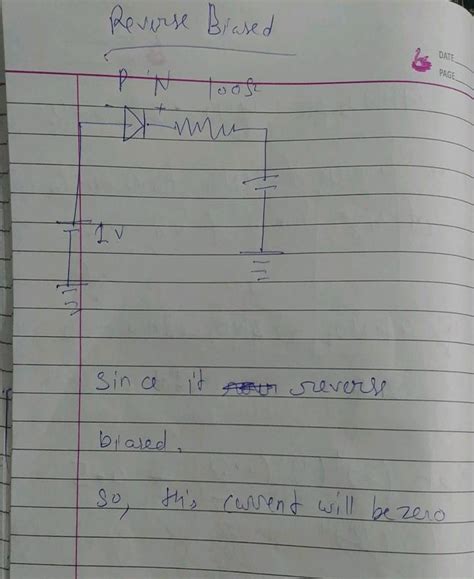 Reverse Biased
DATE
PAGE
P N 100Ω
- +
1 V
Since it reverse
biased.
So, this current will be zero